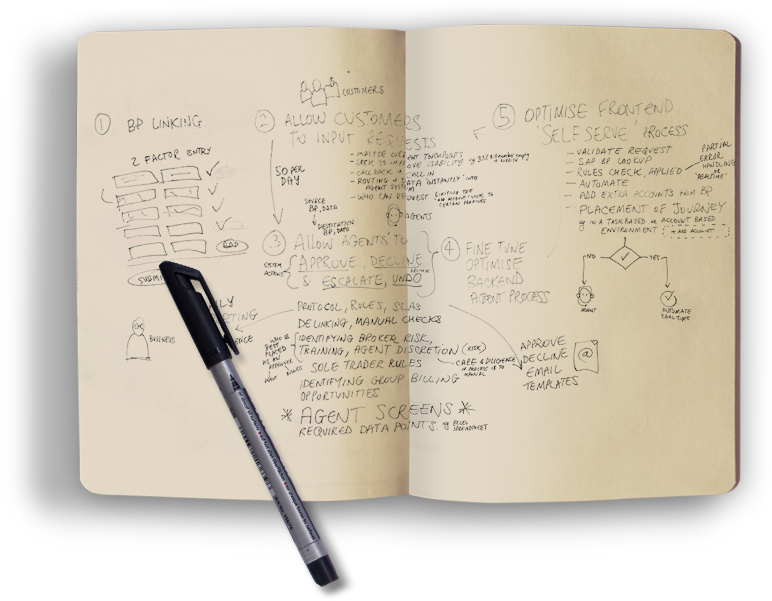 CUSTOMERS
① BP LINKING
2 FACTOR ENTRY
ADD
BUSINESS
② ALLOW CUSTOMERS
TO INPUT REQUESTS
50 PER
DAY
- CALL BACK
- ROUTING OF DATA 'INSTANTLY' INTO
AGENT SYSTEM
- WHO CAN REQUEST
SOURCE
BP, DATA
AGENTS
BP, DATA
③ ALLOW AGENTS TO
APPROVE, DECLINE
& ESCALATE, UNDO
SYSTEM
PROTOCOL, RULES, SLAS
DELINKING, MANUAL CHECKS
IDENTIFYING BROKER RISK,
TRAINING, AGENT DISCRETION (RISK)
SOLE TRADER RULES
IDENTIFYING GROUP BILLING
OPPORTUNITIES
WHO IS
BEST
PLACED
AS AN
APPROVER
CARE & DILIGENCE
IF PROCESS IS TO
MANUAL
* AGENT SCREENS *
REQUIRED DATA POINTS. eg EXCEL
SPREADSHEET
④ FINE TUNE
OPTIMISE
BACKEND
AGENT PROCESS
APPROVE
DECLINE
EMAIL
TEMPLATES
@
⑤ OPTIMISE FRONTEND
'SELF SERVE' PROCESS
- VALIDATE REQUEST
- SAP BP LOOKUP
- RULES CHECK, APPLIED
- AUTOMATE
- ADD EXTRA ACCOUNTS FROM BP
- PLACEMENT OF JOURNEY
eg IN A TASK BASED OR ACCOUNT BASED
ENVIRONMENT + ADD ACCOUNT
PARTIAL
ERROR
HANDLING
OR
'REALTIME'
NO
YES
AGENT
AUTOMATE
REALTIME